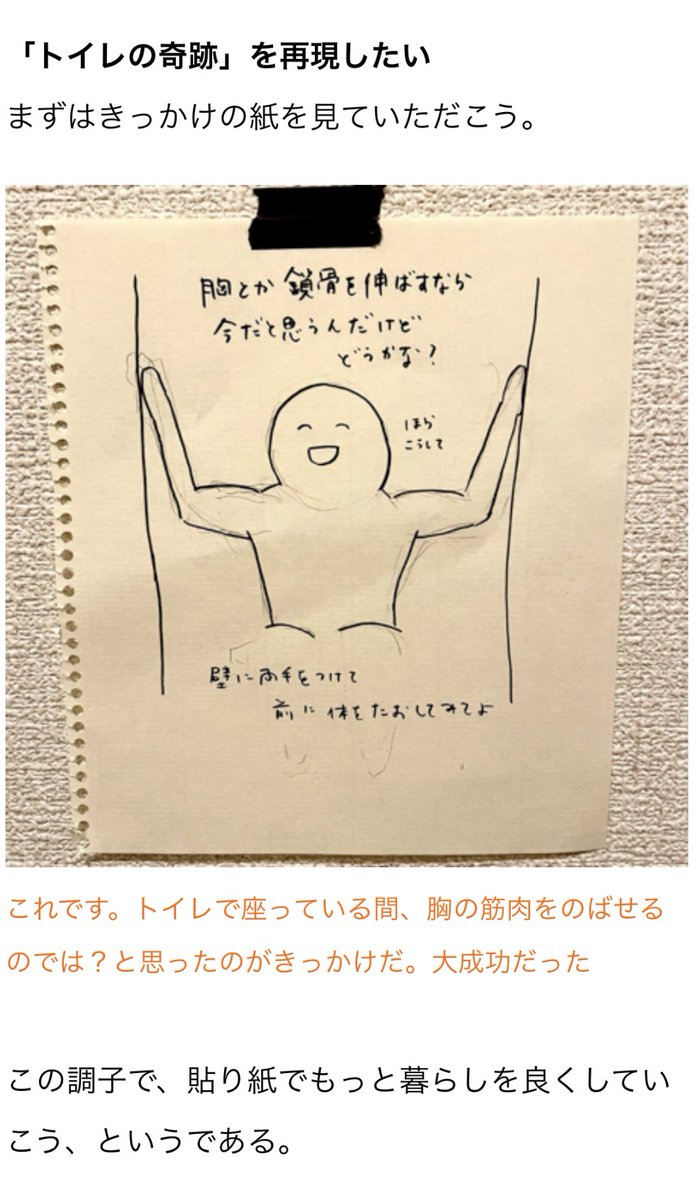 「トイレの奇跡」を再現したい
まずはきっかけの紙を見ていただこう。
胸とか鎖骨を伸ばすなら
今だと思うんだけど
どうかな？
ほら
こうして
壁に両手をつけて
前に体をたおしてみてよ
これです。トイレで座っている間、胸の筋肉をのばせる
のでは？と思ったのがきっかけだ。大成功だった
この調子で、貼り紙でもっと暮らしを良くしてい
こう、というである。